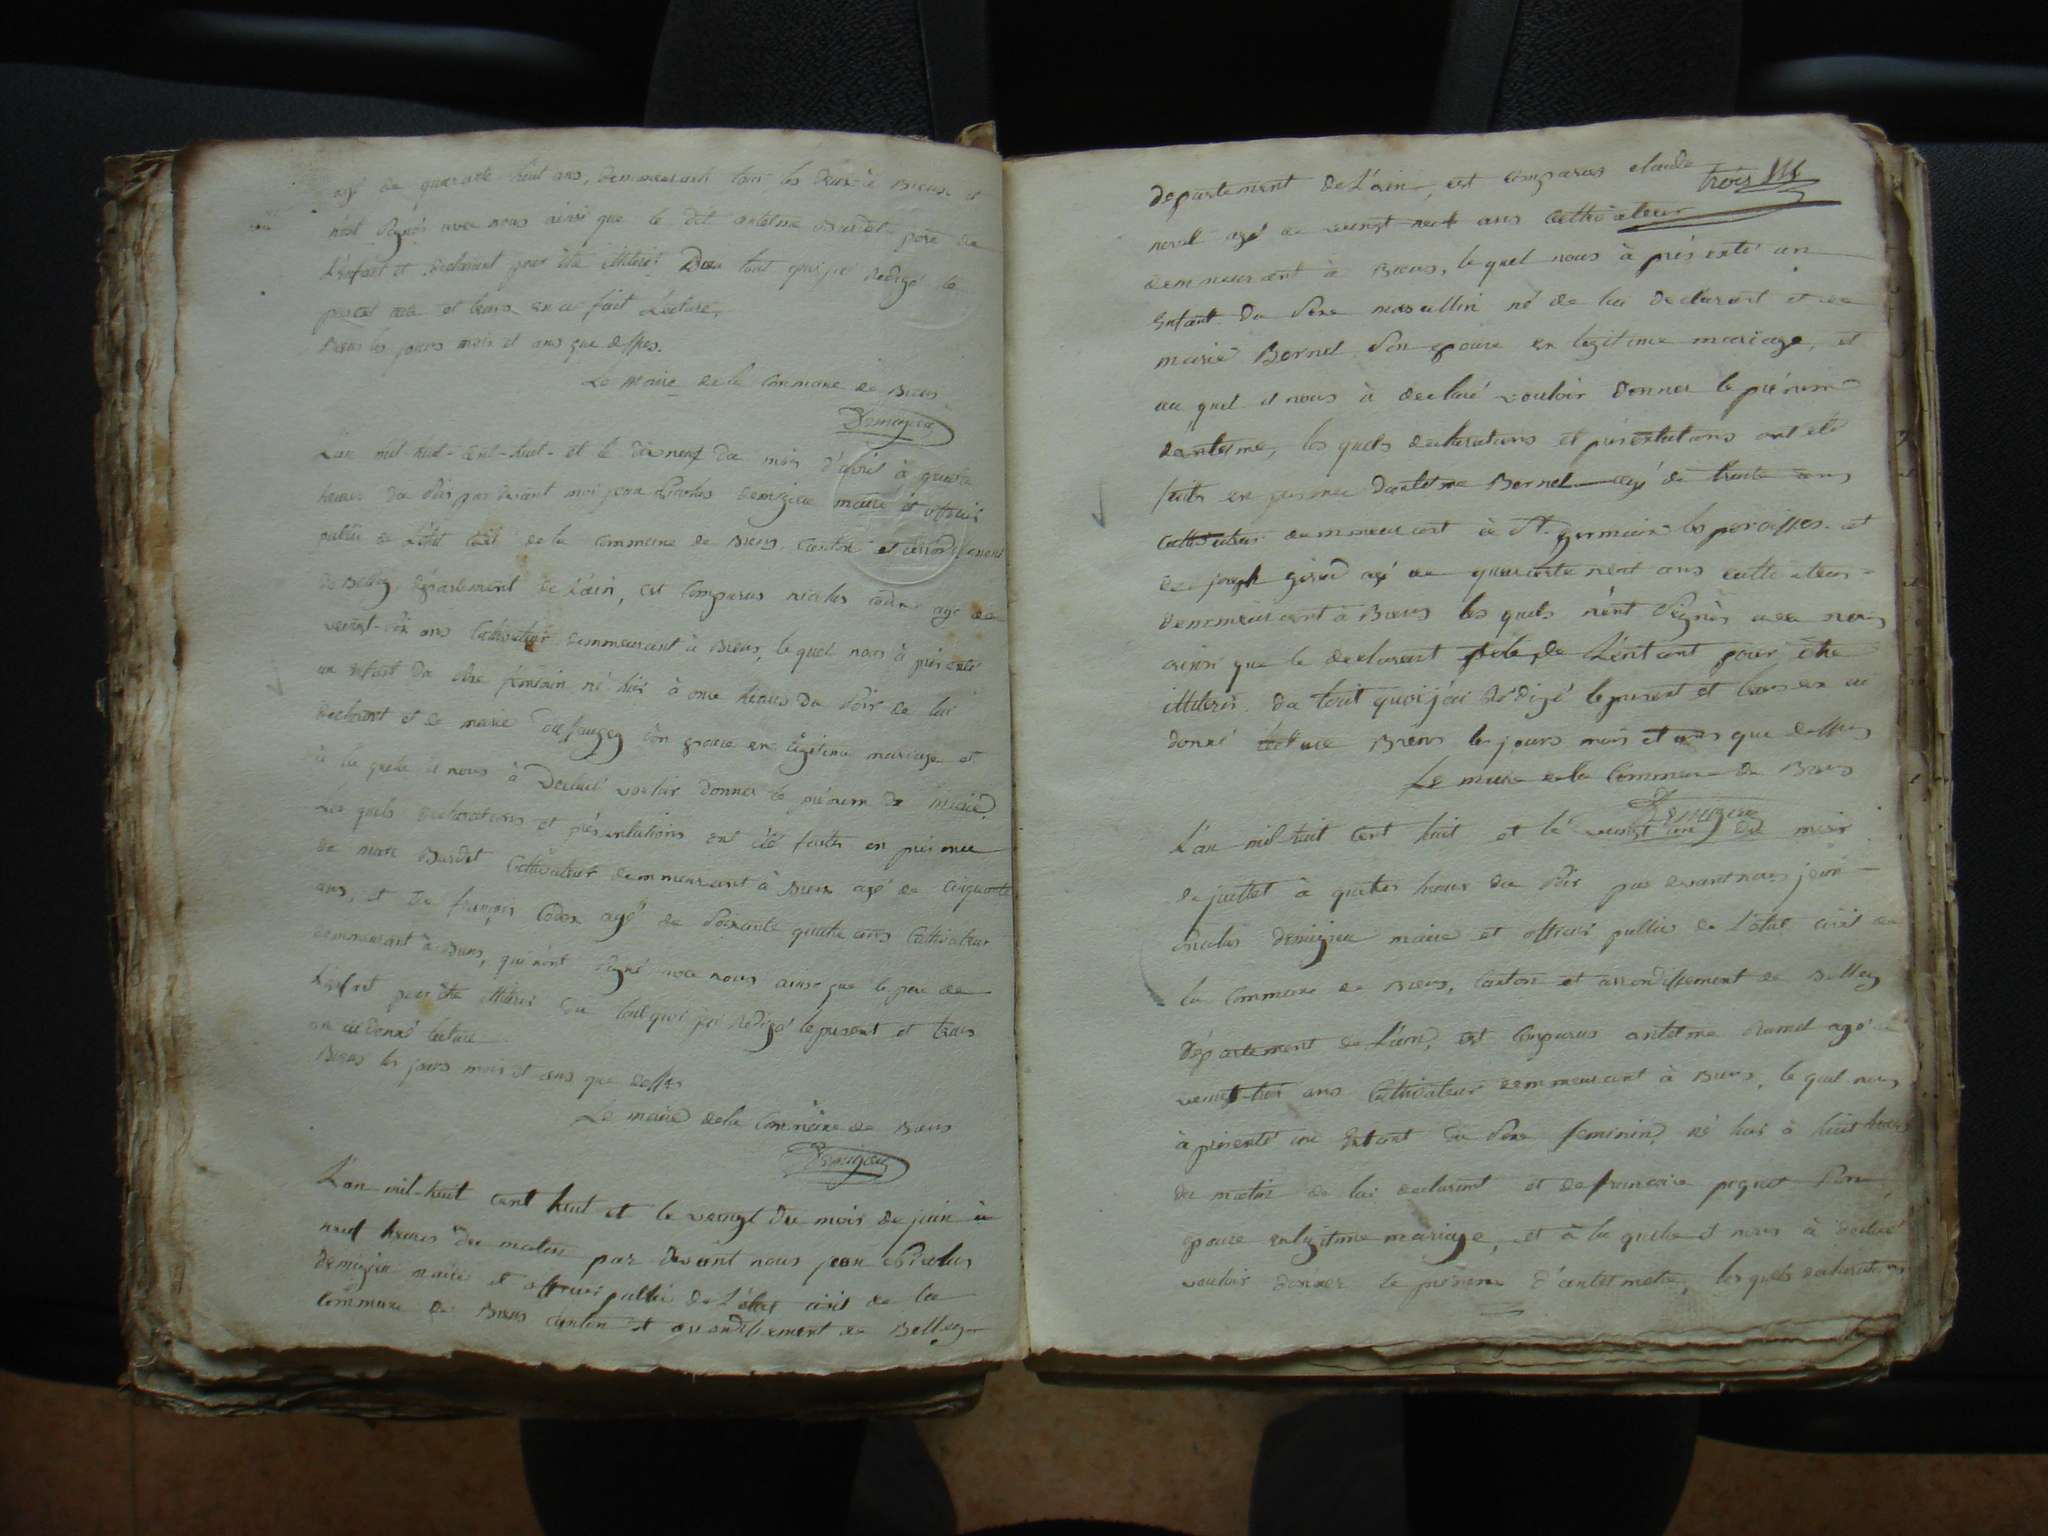 agé de quarante huit ans, demmeurant tous les deux à Brens et
n'ont signés avec nous ainsi que le dit antelme Bardet père de
L'Enfant et declarant pour être illiterés Du tout quoi j'ai redigé le
present acte et leurs en ai fait Lecture,
Brens les jours mois et ans que dessus.
Le Maire de la Commune de Brens
Demigieu
L'an mil-huit-cent-huit et le dixneuf du mois d'avril à quatre
heures du soir par devant moi jean Nicolas demigieu maire et officier
public de L'état civil de la commune de Brens canton et arrondissement
de Belley, departement de L'ain, est comparus nicolas codex agé de
veingt-six ans Cultivateur demmeurant à Brens, le quel nous à présenté
un enfant du sexe féminin né hier à onze heures du soir de lui
declarant et de marie son epouse en légitime mariage et
à la quelle il nous à declaré vouloir donner le prénom de marie,
Les quels declarations et présentations ont été faites en présence
de marc Bardet Cultivateur demmeurant à Brens agé de cinquante
ans, et de françois Codex agé de soixante quatre ans Cultivateur
demmeurant à Brens, qui n'ont signé avec nous ainsi que le père de
L'enfant pour être illiterés Du tout quoi j'ai redigé le present et leurs
en ai donné lecture
Brens les jours mois et ans que dessus
Le maire de la Commune de Brens
Demigieu
L'an mil-huit cent huit et le veingt du mois de juin à
neuf heures du matin par devant nous jean Nicolas
demigieu maire et officier public de L'état civil de la
commune de Brens canton et arrondissement de Belley
trois
departement de L'ain, est comparus claude
agé de veingt neuf ans cultivateur
demmeurant à Brens, le quel nous à présenté un
Enfant du sexe masculin né de lui declarant et de
marie Bornel son epouse en legitime mariage, et
au quel il nous à declaré vouloir donner le prénom
dantelme, les quels declarations et présentations ont été
faites en presence dantelme Bornel agé de trente ans
cultivateur demmeurant à St. germain les paroisses et
de joseph girod agé de quarante neuf ans cultivateur
demmeurant à Brens les quels n'ont signés avec nous
ainsi que le declarant père de L'enfant pour être
illiterés. du tout quoi j'ai rédigé le present et leurs en ai
donné lecture Brens les jours mois et ans que dessus
Le maire de la Commune de Brens
Demigieu
L'an mil huit cent huit et le veingt un du mois
de juillet à quatres heures du soir par devant nous jean
Nicolas demigieu maire et officier public de L'état civil de
la commune de Brens, canton et arrondissement de Belley
département de L'ain, est comparus antelme agé de
veingt-trois ans Cultivateur demmeurant à Brens, le quel nous
à présenté un Enfant du sexe feminin, né hier à huit heures
du matin de lui declarant et de francoise son
epouse en legitime mariage, et à la quelle il nous à declaré
vouloir donner le prénom d'antelmette, les quels declarations